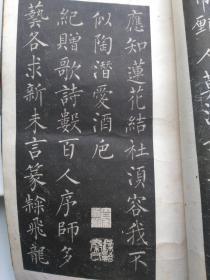 應知蓮花結社須容我不
似陶潛愛酒卮
紀贈歌詩數百人序師多
藝各求新未言篆隸飛龍